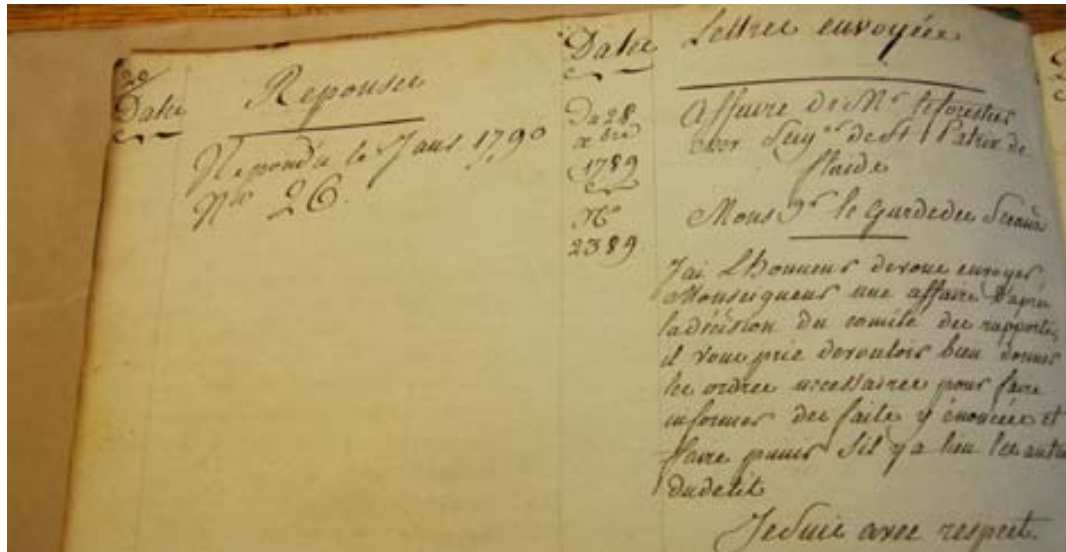 Date
Reponses
Repondu le 7 janv 1790
Nº 26.
Dates
Lettres envoyées
Du 28
xbre
1789
Nº
2389
affaire de Mr leforestier
Seigr de St Patrix de
Claids
Monsgr le Gardedes Sceaux
J'ai L'honneur devous envoyer
Monseigneur une affaire d'après
ladécision du comité des rapports,
il vous prie devouloir bien donner
les ordres necessaires pour faire
informer des faits y énoncés et
faire punir S'il y a lieu les
dudelit
JeSuis avec respect.